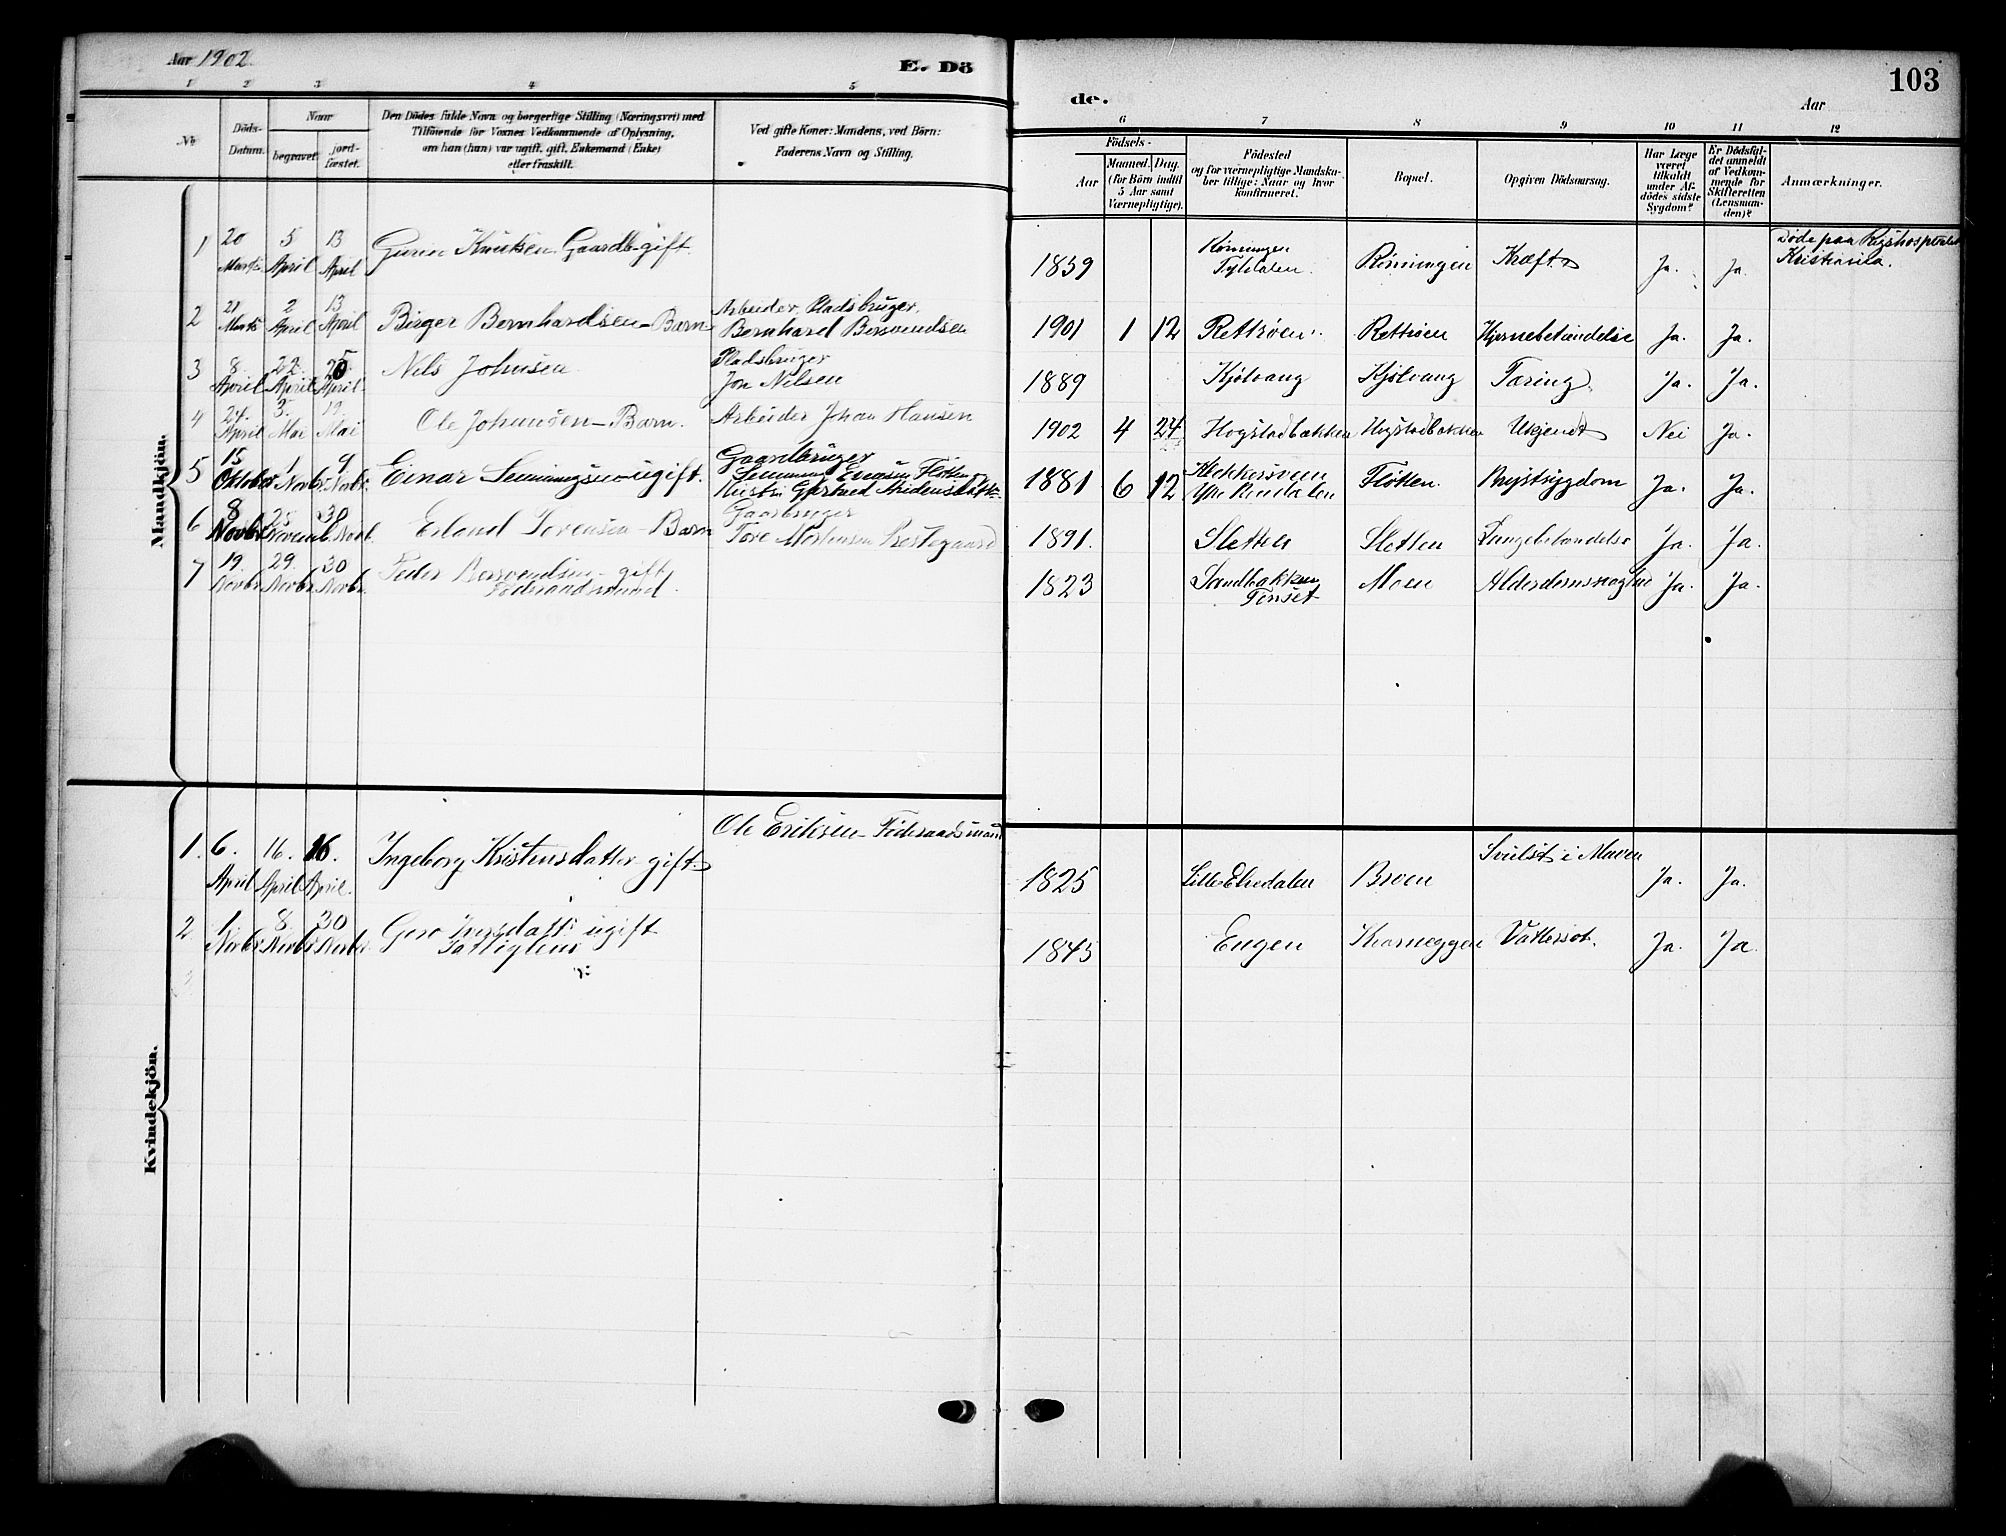 Aar 1902.
E. Dö
1 2 3 4 5
No
Döds-
Datum.
Naar
begravet.
jord-
fæstet.
Den Dödes fulde Navn og borgerlige Stilling (Næringsvei) med
Tilföiende for Voxnes Vedkommende af Oplysning,
om han (hun) var ugift, gift, Enkemand (Enke)
eller fraskilt.
Ved gifte Koner: Mandens, ved Börn:
Faderens Navn og Stilling.
Mandkjön.
1 20 Marts 5 April 13 April Knutsen Gaardb. gift.
2 21 Marts 2 April 13 April Birger Bernhardsen - Barn
Arbeider, Pladsbruger,
Bernhard Bersvendsen
3 8 April 22. April April. Nils Johnsen
Pladsbruger
Jon Nilsen
4 24. April 3. Mai Mai Ole Johansen - Barn.
Arbeider Johan Hansen
5 15 Oktober 1 Novbr. 9 Novbr. Einar ugift.
Gaardbruger
6 8 Novbr 30 Novbr. Erland - Barn
Gaarbruger
Tore Mortensen
7 19. Novbr. 29. Novbr. 30 Novbr. Peder Bersvendsen - gift
Föderaadsmand.
Kvindekjön.
1. 6. April 16. April 16. April. Ingeborg Kristensdatter gift
Ole Eriksen - Föderaadsmand
2 1 Novbr. 8 Novbr. 30 Novbr. ugift
103
de.
Aar
6 7 8 9 10 11 12
Födsels-
Aar
Maaned.
Dag.
(for Börn indtil
5 Aar samt
Værnepligtige).
Födested
og for værnepligtige Mandska-
ber tillige: Naar og hvor
konfirmeret.
Bopæl.
Opgiven Dödsaarsag.
Har Læge
været
tilkaldt
under Af-
dödes sidste
Sygdom?
Er Dödsfal-
det anmeldt
af Vedkom-
mende for
Skifteretten
(Lensman-
den)?
Anmærkninger.
1859 Rönningen
Tyldalen. Rönningen Kræft Ja. Ja. Döde paa Rigshospitalet
Kristiania.
1901 1 12 Rettröen. Rettröen Hjernebetændelse Ja. Ja.
1889 Kjölvang Kjölvang Tæring. Ja. Ja.
1902 4 24 Hogstadbakken Hogstadbakken Ukjendt Nei Ja.
1881 6 12
Rendalen Flötten. Brystsygdom Ja. Ja.
1891. Sletten Sletten Lungebetændelse Ja. Ja.
1823 Sandbakken
Tönset Moen Alderdomssvaghed Ja. Ja.
1825 Lille Elvedalen Broen Svulst i Maven Ja. Ja.
1845 Engen Kvarneggen Vattersot. Ja. Ja.